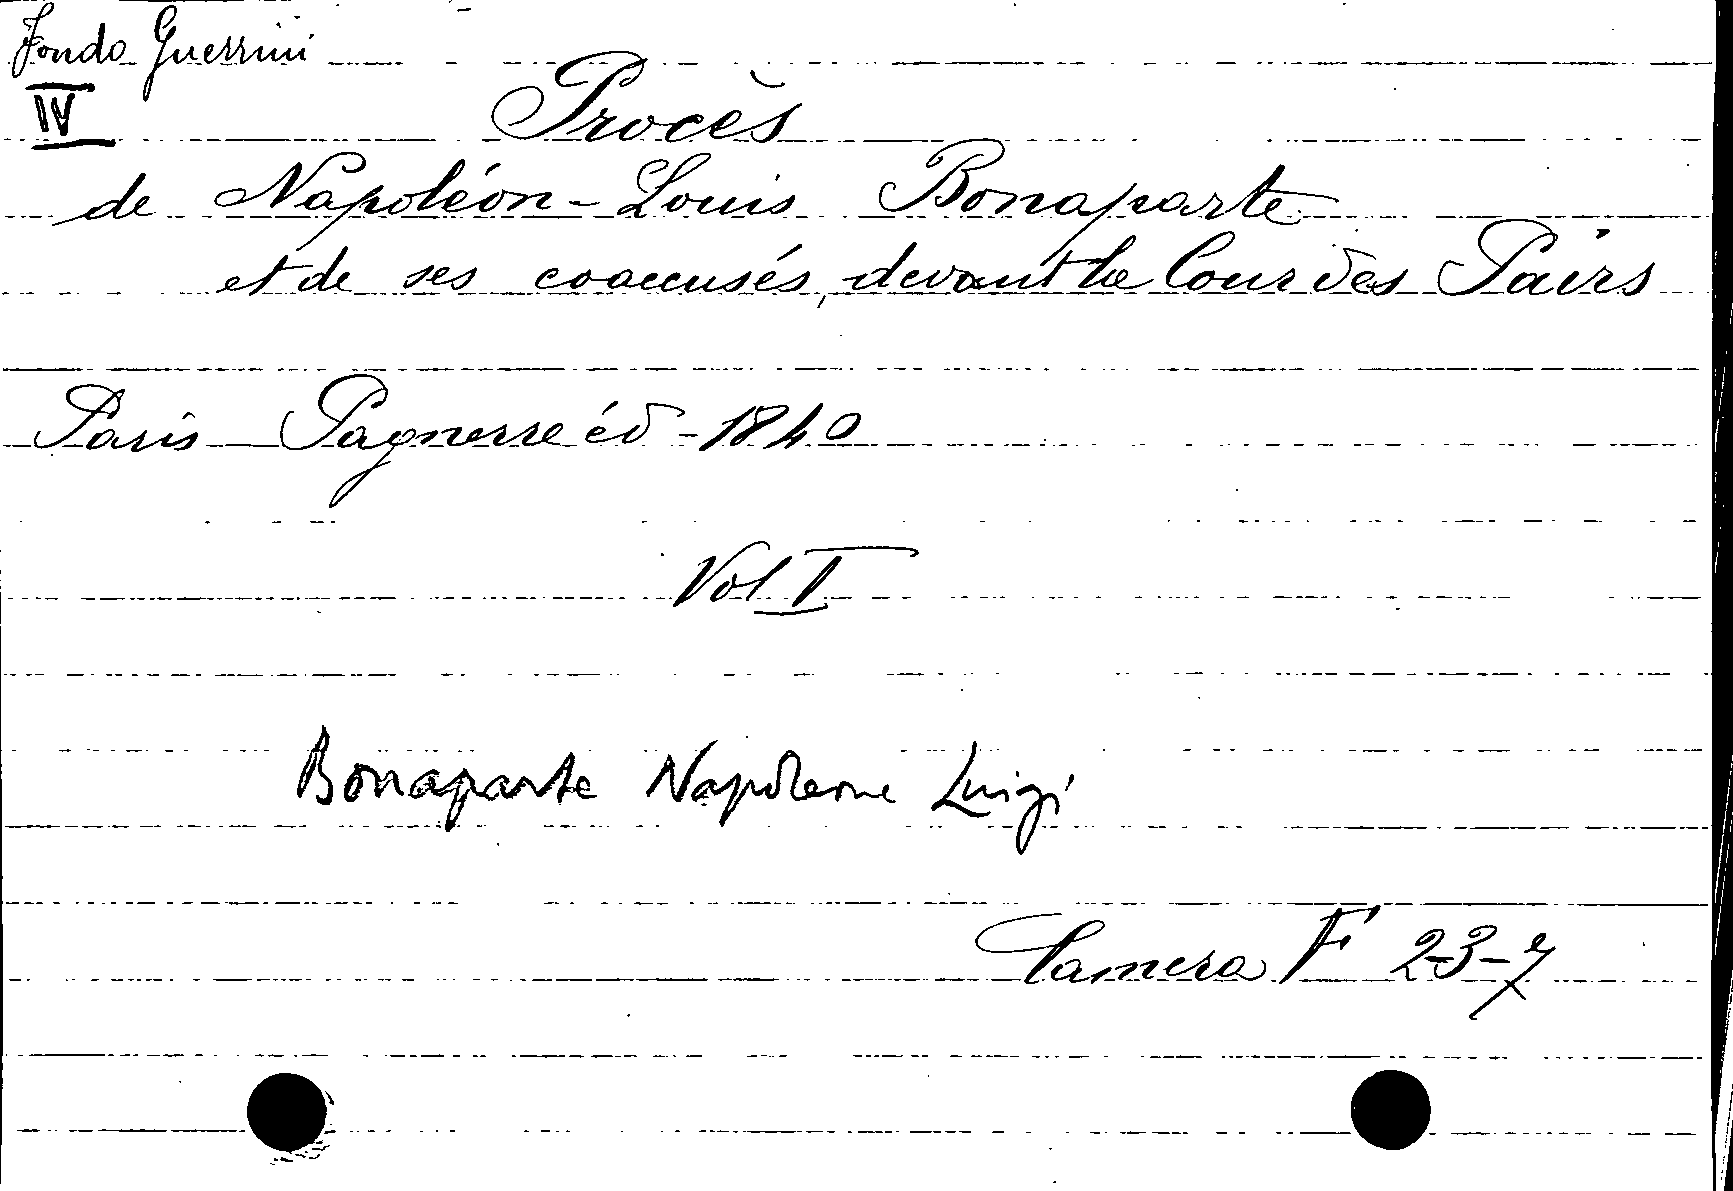 Fondo Guerrini
IV
Procès
de Napoléon-Louis Bonaparte
et de ses coaccusés, devant la Cour des Pairs
Paris Pagnerre éd - 1840
Vol I
Bonaparte Napoleone Luigi
Camera F 23-7